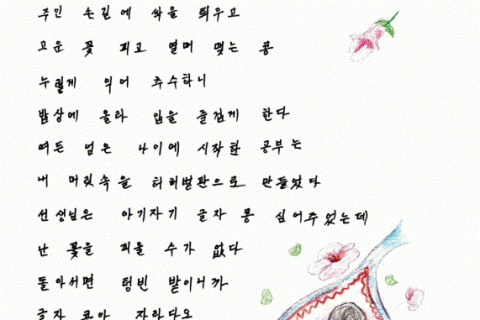 주인 손길에 싹을 틔우고
고운 꽃 피고 열매 맺는 콩
누렇게 익어 추수하니
밥상에 올라 입을 즐겁게 한다
여든 넘은 나이에 시작한 공부는
내 머릿속을 허허벌판으로 만들었다
선생님은 아기자기 글자 콩 심어주었는데
난 꽃을 피울 수가 없다
돌아서면 텅빈 밭이니까
글자 콩아 자라다오